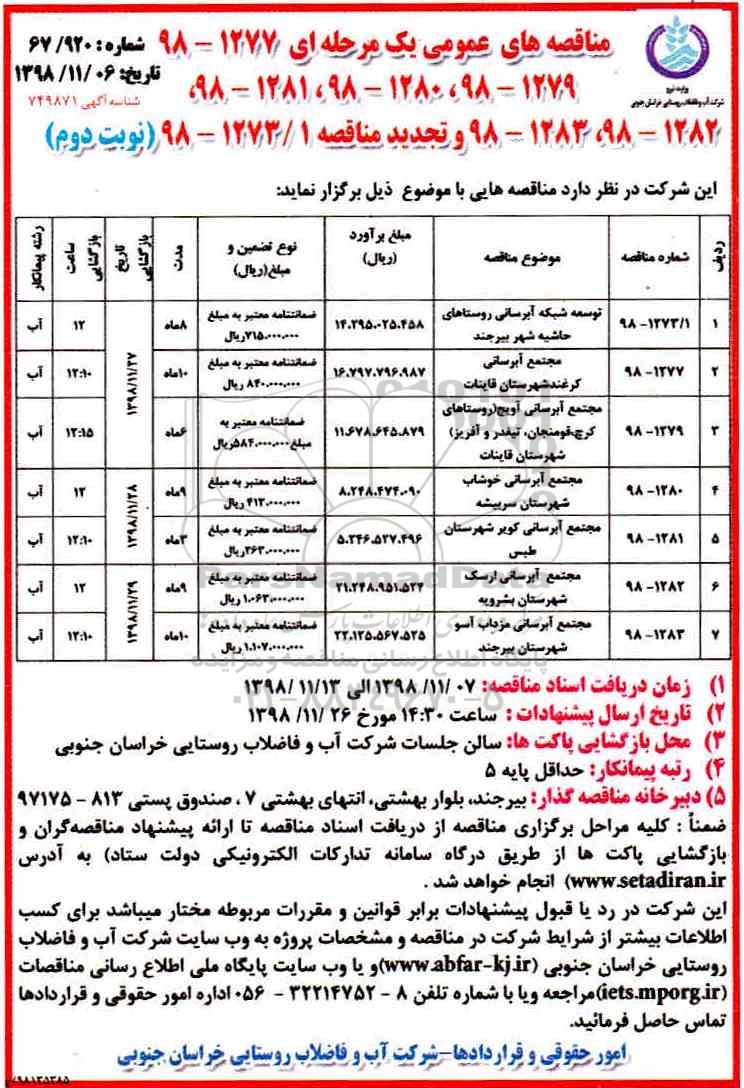 مناقصه های عمومی یک مرحله ای ۱۲۷۷ - ۹۸
۱۲۷۹ - ۹۸، ۱۲۸۰ - ۹۸، ۱۲۸۱ - ۹۸،
۱۲۸۲ - ۹۸، ۱۲۸۳ - ۹۸ و تجدید مناقصه ۱/ ۱۲۷۳ - ۹۸ (نوبت دوم)
شماره: ۶۷/۹۲۰
تاریخ: ۱۳۹۸/۱۱/۰۶
شناسه آگهی ۷۴۹۸۷۱
وزارت نیرو
شرکت آب و فاضلاب روستایی خراسان جنوبی
این شرکت در نظر دارد مناقصه هایی با موضوع ذیل برگزار نماید:
ردیف شماره مناقصه موضوع مناقصه مبلغ برآورد (ریال) نوع تضمین و مبلغ(ریال) مدت تاریخ بازگشایی ساعت بازگشایی رشته پیمانکار
۱ ۱۲۷۳/۱- ۹۸ توسعه شبکه آبرسانی روستاهای حاشیه شهر بیرجند ۱۴.۲۹۵.۰۲۵.۴۵۸ ضمانتنامه معتبر به مبلغ ۷۱۵.۰۰۰.۰۰۰ریال ۸ماه ۱۳۹۸/۱۱/۲۷ ۱۲ آب
۲ ۱۲۷۷- ۹۸ مجتمع آبرسانی کرغندشهرستان قاینات ۱۶.۷۹۷.۷۹۶.۹۸۷ ضمانتنامه معتبر به مبلغ ۸۴۰.۰۰۰.۰۰۰ ریال ۱۰ماه ۱۲:۱۰ آب
۳ ۱۲۷۹- ۹۸ مجتمع آبرسانی آویج(روستاهای کرج،فومنجان، تیغدر و آفریز) شهرستان قاینات ۱۱.۶۷۸.۶۴۵.۸۷۹ ضمانتنامه معتبر به مبلغ۵۸۴.۰۰۰.۰۰۰ریال ۶ماه ۱۲:۱۵ آب
۴ ۱۲۸۰- ۹۸ مجتمع آبرسانی خوشاب شهرستان سربیشه ۸.۲۴۸.۴۷۴.۰۹۰ ضمانتنامه معتبر به مبلغ ۴۱۳.۰۰۰.۰۰۰ ریال ۹ماه ۱۳۹۸/۱۱/۲۸ ۱۲ آب
۵ ۱۲۸۱- ۹۸ مجتمع آبرسانی کویر شهرستان طبس ۵.۲۴۶.۵۲۷.۴۹۶ ضمانتنامه معتبر به مبلغ ۲۶۳.۰۰۰.۰۰۰ریال ۳ماه ۱۲:۱۰ آب
۶ ۱۲۸۲- ۹۸ مجتمع آبرسانی ارسک شهرستان بشرویه ۲۱.۲۴۸.۹۵۱.۵۲۴ ضمانتنامه معتبر به مبلغ ۱.۰۶۳.۰۰۰.۰۰۰ ریال ۹ماه ۱۳۹۸/۱۱/۲۹ ۱۲ آب
۷ ۱۲۸۳- ۹۸ مجتمع آبرسانی مزداب آسو شهرستان بیرجند ۲۲.۱۲۵.۵۶۷.۵۲۵ ضمانتنامه معتبر به مبلغ ۱.۱۰۷.۰۰۰.۰۰۰ ریال ۱۰ماه ۱۲:۱۰ آب
ParsNamadData
پایگاه اطلاع رسانی مناقصه و مزایده
۰۲۱-۸۸۳۴۹۶۷۰-۵
۱) زمان دریافت اسناد مناقصه: ۰۷ /۱۱/ ۱۳۹۸ الی ۱۱/۱۳/ ۱۳۹۸
۲) تاریخ ارسال پیشنهادات : ساعت ۱۴:۳۰ مورخ ۲۶ /۱۱/ ۱۳۹۸
۳) محل بازگشایی پاکت ها: سالن جلسات شرکت آب و فاضلاب روستایی خراسان جنوبی
۴) رتبه پیمانکار: حداقل پایه ۵
۵) دبیرخانه مناقصه گذار: بیرجند، بلوار بهشتی، انتهای بهشتی ۷ ، صندوق پستی ۸۱۳ - ۹۷۱۷۵
ضمناً : کلیه مراحل برگزاری مناقصه از دریافت اسناد مناقصه تا ارائه پیشنهاد مناقصه‌گران و
بازگشایی پاکت ها از طریق درگاه سامانه تدارکات الکترونیکی دولت ستاد) به آدرس
www.setadiran.ir) انجام خواهد شد .
این شرکت در رد یا قبول پیشنهادات برابر قوانین و مقررات مربوطه مختار میباشد برای کسب
اطلاعات بیشتر از شرایط شرکت در مناقصه و مشخصات پروژه به وب سایت شرکت آب و فاضلاب
روستایی خراسان جنوبی (www.abfar-kj.ir)و یا وب سایت پایگاه ملی اطلاع رسانی مناقصات
(iets.mporg.ir)مراجعه ویا با شماره تلفن ۸ - ۳۲۲۱۴۷۵۲ - ۰۵۶ اداره امور حقوقی و قراردادها
تماس حاصل فرمائید.
امور حقوقی و قراردادها-شرکت آب و فاضلاب روستایی خراسان جنوبی
۹۸۱۳۵۳۸۵